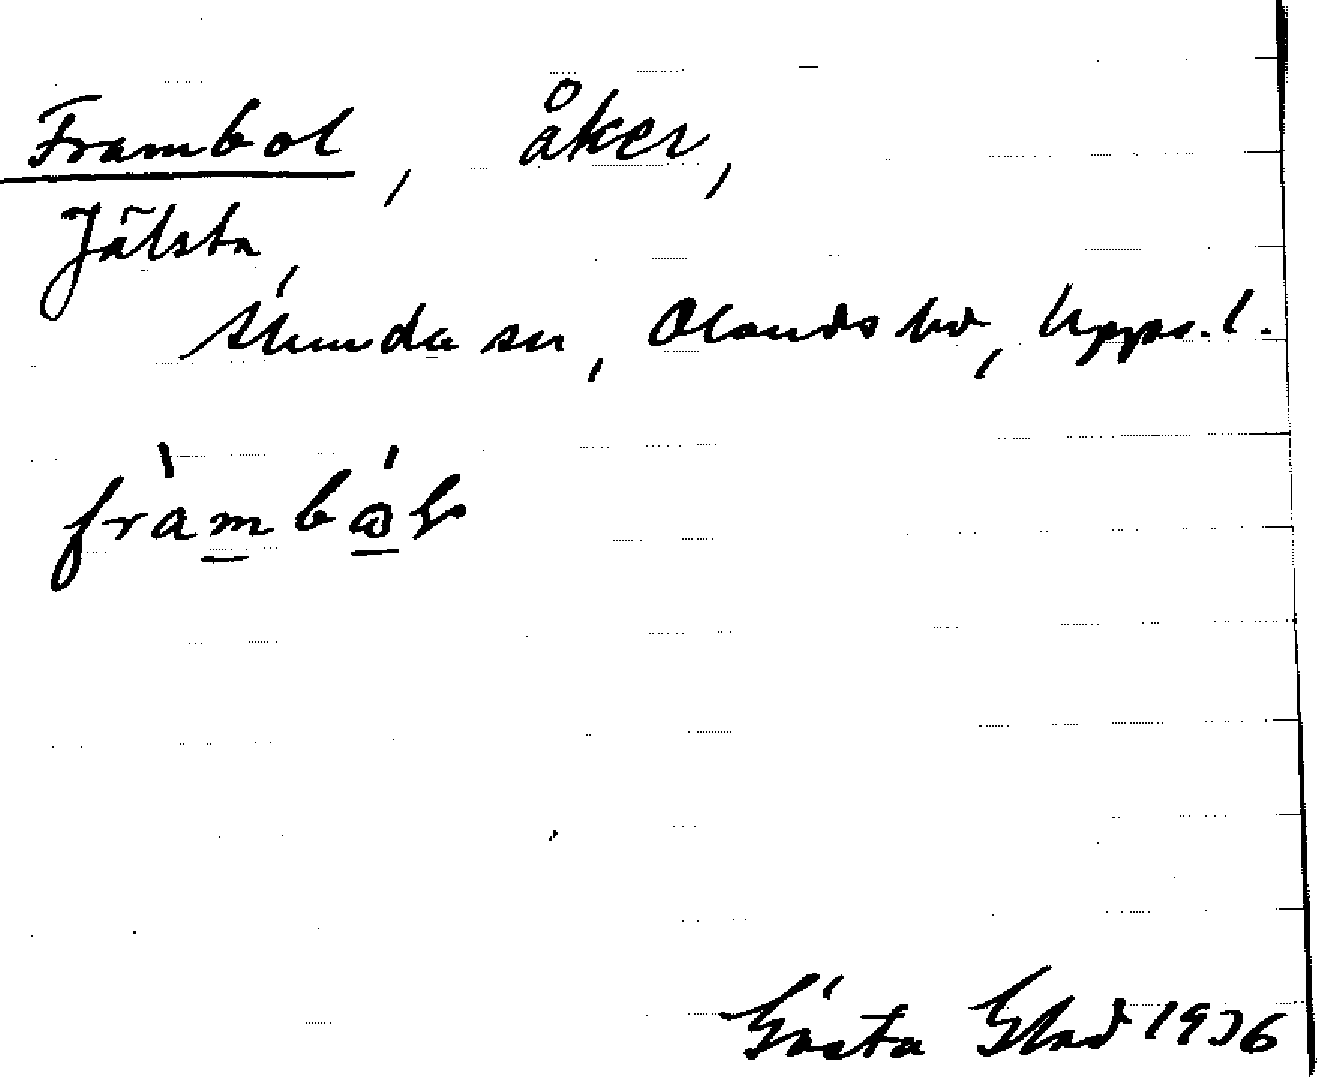 Frambol, åker,
Jälsta,
Skunda sn, Olands hd, Upps. l.
Gösta Glad 1936